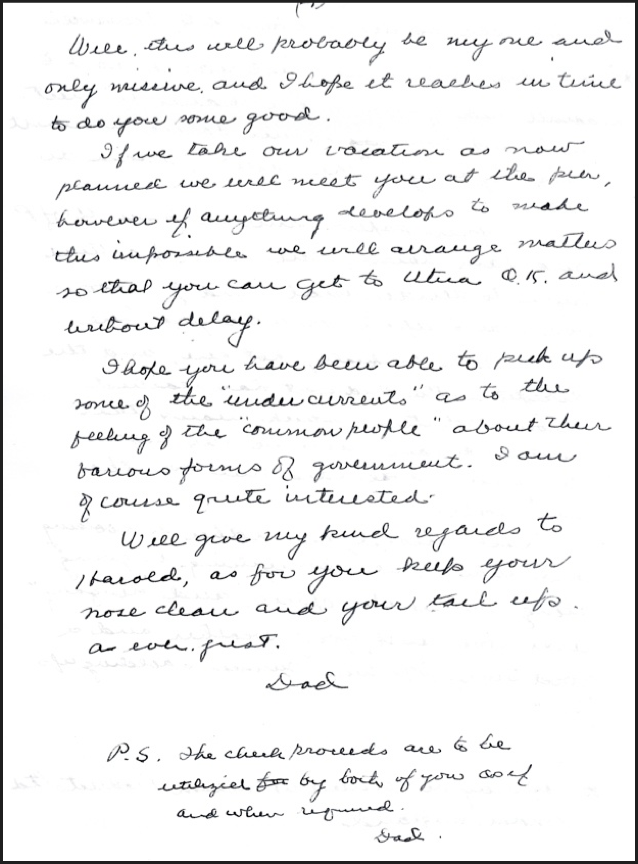 Well, this will probably be my one and
only missive, and I hope it reaches in time
to do you some good.
If we take our vacation as now
planned we will meet you at the pier,
however if anything develops to make
this impossible we will arrange matters
so that you can get to Utica O.K. and
without delay.
I hope you have been able to pick up
some of the "undercurrents" as to the
feeling of the "common people" about their
various forms of government. I am
of course quite interested.
Well give my kind regards to
Harold, as for you keep your
nose clean and your tail up.
as ever,
Dad
P.S. The check proceeds are to be
utilized for by both of you as if
and when required.
Dad.